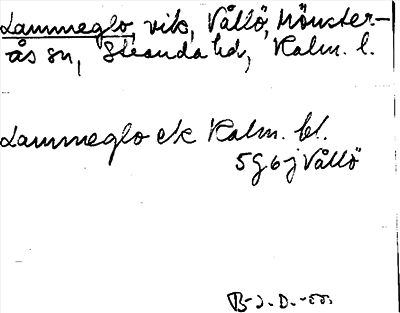 Lammeglo, vik, Vållö, Mönster-
ås sn, Stranda hd, Kalm. l.
Lammeglo ek Kalm. bl.
5G6j Vållö